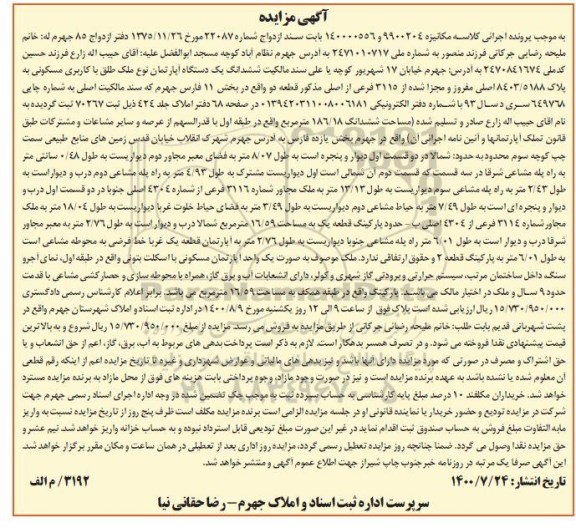 آگهی مزایده
به موجب پرونده اجرائی کلاسه مکانیزه ۹۹۰۰۲۰۴ و ۱۴۰۰۰۰۵۵۶ بابت سند ازدواج شماره ۲۲۰۸۷ مورخ ۱۳۷۵/۱۱/۲۶ دفتر ازدواج ۸۵ جهرم له: خانم
ملیحه رضایی جرکانی فرزند منصور به شماره ملی ۲۴۷۱۰۱۰۷۱۷ به آدرس جهرم نظام آباد کوچه مسجد ابوالفضل علیه: آقای حبیب اله زارع فرزند حسین
کدملی ۲۴۷۰۸۴۱۶۷۴ به آدرس: جهرم خیابان ۱۷ شهریور کوچه یا علی سندمالکیت ششدانگ یک دستگاه آپارتمان نوع ملک طلق با کاربری مسکونی به
پلاک ۸۴۰۳/۵۱۸۸ اصلی مفروز و مجزا شده از ۳۱۱۵ فرعی از اصلی مذکور قطعه دو واقع در بخش ۱۱ فارس جهرم که سند مالکیت اصلی به شماره چاپی
۶۴۹۷۶۸ سری د سال ۹۳ با شماره دفتر الکترونیکی ۰۱۳۹۴۲۰۳۱۱۰۰۸۰۰۶۱۸۱ در صفحه ۶۸ دفتر املاک جلد ۴۲۴ ذیل ثبت ۷۰۲۶۷ ثبت گردیده به
نام آقای حبیب اله زارع صادر و تسلیم شده (مساحت ششدانگ ۱۸۶/۱۸ مترمربع واقع در طبقه اول با قدرالسهم از عرصه و سایر مشاعات و مشترکات طبق
قانون تملک آپارتمانها و آئین نامه اجرائی آن) واقع در جهرم بخش یازده فارس به آدرس جهرم شهرک انقلاب خیابان قدس زمین های منابع طبیعی سمت
چپ کوچه سوم محدود به حدود: شمالا در دو قسمت اول دیوار و پنجره است به طول ۸/۰۷ متر به فضای معبر مجاور دوم دیواریست به طول ۰/۴۸ سانتی متر
به راه پله مشاعی شرقا در سه قسمت که قسمت دوم آن شمالی است اول دیواریست مشترک به طول ۴/۹۳ متر به راه پله مشاعی دوم درب و دیوار است به
طول ۲/۴۳ متر به راه پله مشاعی سوم دیواریست به طول ۱۳/۱۳ متر به ملک مجاور شماره ۳۱۱۶ فرعی از شماره ۴۳۰۴ اصلی جنوبا در دو قسمت اول درب و
دیوار و پنجره ای است به طول ۷/۴۹ متر به حیاط مشاعی دوم دیواریست به طول ۳/۴۹ متر به فضای حیاط خلوت غربا دیواریست به طول ۱۸/۰۴ متر به ملک
مجاور شماره ۳۱۱۴ فرعی از ۴۳۰۴ اصلی ب- حدود پارکینگ قطعه یک به مساحت ۱۶/۵۹ مترمربع شمالا درب و دیوار است به طول ۲/۷۶ متر به معبر مجاور
شرقا درب و دیوار است به طول ۶/۰۱ متر راه پله مشاعی جنوبا دیواریست به طول ۲/۷۶ متر به آپارتمان قطعه یک غربا خط فرضی به محوطه مشاعی است
به طول ۶/۰۱ متر به پارکینگ قطعه ۲ و حقوق ارتفاقی ندارد. ملک موصوف به صورت یک واحد آپارتمان مسکونی با اسکلت بتونی واقع در طبقه اول، نمای آجرو
سنگ، داخل ساختمان مرتب، سیستم حرارتی وبرودتی گاز شهری و کولر، دارای انشعابات آب و برق گاز، همراه با محوطه سازی و حصارکشی مشاعی با قدمت
حدود ۹ سال و ملک در اختیار مالک می باشد. پارکینگ واقع در طبقه همکف به مساحت ۱۶/۵۹ مترمربع می باشد. برابر اعلام کارشناس رسمی دادگستری
۱۵/۷۳۰/۹۵۰/۰۰۰ ریال ارزیابی شده است پلاک فوق از ساعت ۹ الی ۱۲ روز یکشنبه مورخ ۱۴۰۰/۸/۹ در اداره ثبت اسناد و املاک شهرستان جهرم واقع در
پشت شهربانی قدیم بابت طلب: خانم ملیحه رضائی جرکانی از طریق مزایده به فروش می رسد. مزایده از مبلغ ۱۵/۷۳۰/۹۵۰/۰۰۰ ریال شروع و به بالاترین
قیمت پیشنهادی نقدا فروخته می شود. و در تصرف همسر بدهکار است. لازم به ذکر است پرداخت بدهی های مربوط به آب، برق، گاز، اعم از حق انشعاب و یا
حق اشتراک و مصرف در صورتی که مورد مزایده دارای آنها باشد و نیز بدهی های مالیاتی و عوارض شهرداری و غیره تا تاریخ مزایده اعم از اینکه رقم قطعی
آن معلوم شده یا نشده باشد به عهده برنده مزایده است و نیز در صورت وجود مازاد وجوه پرداختی بابت هزینه های فوق از محل مازاد به برنده مزایده مسترد
خواهد شد. خریداران مکلفند ۱۰ درصد مبلغ پایه کارشناسی به حساب سپرده ثبت به موجب یک تضمین شده در وجه اداره اجرای اسناد رسمی جهرم جهت
شرکت در مزایده تودیع و حضور خریدار یا نماینده قانونی او در جلسه مزایده الزامی است برنده مزایده مکلف است ظرف پنج روز از تاریخ مزایده نسبت به واریز
مابه التفاوت مبلغ فروش به حساب صندوق ثبت اقدام نماید در غیر این صورت مبلغ تودیعی قابل استرداد نبوده و به حساب خزانه واریز خواهد شد. نیم عشر و
حق مزایده نقدا وصول می گردد. ضمنا چنانچه روز مزایده تعطیل رسمی گردد، مزایده روز اداری بعد از تعطیلی در همان ساعت و مکان مقرر برگزار خواهد شد.
این آگهی صرفا یک مرتبه در روزنامه خبرجنوب چاپ شیراز جهت اطلاع عموم آگهی و منتشر خواهد شد.
تاریخ انتشار: ۱۴۰۰/۷/۲۴ ۳۱۹۲/م الف
سرپرست اداره ثبت اسناد و املاک جهرم- رضا حقانی نیا